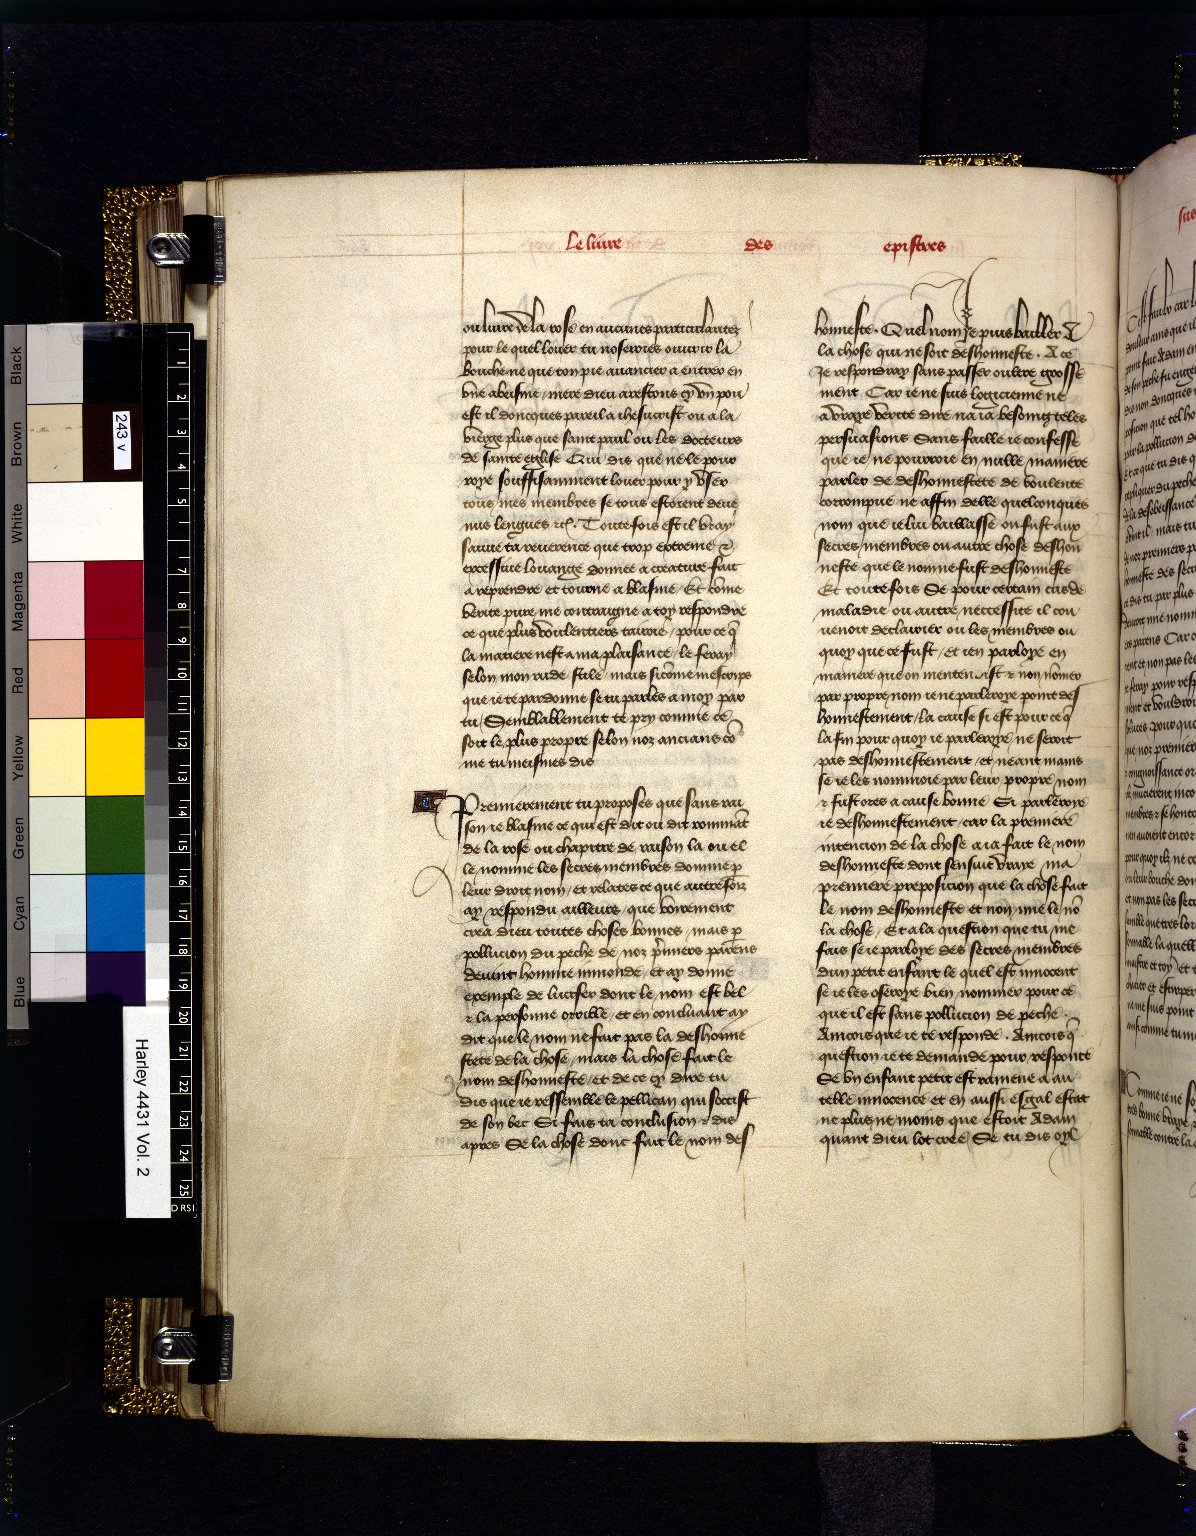 Le livre des epistres
ou livre de la rose en aucunes particularitez
pour le quel louer tu noseroies ouvrir la
bouche ne que ton pie avancier a entrer en
une abisme / mere dieu arestons cy un pou
est il doncques pareil a ihesucrist ou a la
vierge plus que saint paul ou les docteurs
de sainte eglise Qui dis que ne le pour
roye souffisamment louer pour y user
tous mes membres se tous estoient deve
nus lengues etc. Toutefois est il vray
sauve ta reverence que trop extreme et
excessive louange donnee a creature fait
a reprendre et tourne a blasme / Et come
verite pure me contraigne a toy respondre
ce que plus voulentiers tairoie / pour ce q
la matiere nest a ma plaisance / le feray
selon mon rude stile / mais sicome mescrips
que ie te pardonne se tu parles a moy par
tu / Semblablement te pry comme ce
soit le plus propre selon noz ancians co
me tu meismes dis
Premierement tu proposes que sans rai
son ie blasme ce qui est dit ou dit rommāt
de la rose ou chapitre de raison la ou el
le nomme les secres membres domme p
leur droit nom / et relates ce que autrefoiz
ay respondu ailleurs / que voirement
crea dieu toutes choses bonnes / mais p
pollucion du pechie de noz p̄miers parens
devint homme inmonde / et ay donne
exemple de lucifer dont le nom est bel
et la personne orrible / et en concluant ay
dit que le nom ne fait pas la deshonne
stete de la chose / mais la chose fait le
nom deshonneste / et de ce cy dire tu
dis que ie ressemble le pellican qui soccist
de son bec Si fais ta conclusion et dis
apres Se la chose donc fait le nom des
honneste . Quel nom Je puis baillier A
la chose qui ne soit deshonneste . A ce
Je respondray sans passer oultre grosse
ment Car ie ne suis logicienne ne
a vraye verite dire na ia besoing teles
persuasions Sans faille ie confesse
que ie ne pourroie en nulle maniere
parler de deshonnestete de voulente
corrompue ne affin delle quelconques
nom que ie lui baillasse ou fust aux
secres membres ou autre chose deshon
neste que le nom ne fust deshonneste
Et toutefois Se pour certain cas de
maladie ou autre neccessite il cou
venoit declairier ou les membres ou
quoy que ce fust / et ien parloye en
maniere que on mentendist et non nōmer
par propre nom ie ne parleroye point des
honnestement / la cause si est pour ce q
la fin pour quoy ie parleroye ne seroit
pas deshonnestement / et neant mains
se ie les nommoie par leur propre nom
et fust ores a cause bonne Si parleroye
ie deshonnestement / car la premiere
intencion de la chose a ia fait le nom
deshonneste dont sensuit vraye ma
premiere preposicion que la chose fait
le nom deshonneste et non mie le nō
la chose / Et a la question que tu me
fais se ie parloye des secres membres
dun petit enfant le quel est innocent
se ie les oseroye bien nommer pour ce
que il est sans pollucion de pechie .
Aincois que ie te responde . Aincois q
question ie te demande pour response
Se un enfant petit est ramene a au
telle innocence et en aussi esgal estat
ne plus ne moins que estoit Adam
quant dieu lot cree Se tu dis oyl
243 v
Harley 4431 Vol. 2
Black
Brown
White
Magenta
Red
Yellow
Green
Cyan
Blue
1
2
3
4
5
6
7
8
9
10
11
12
13
14
15
16
17
18
19
20
21
22
23
24
25